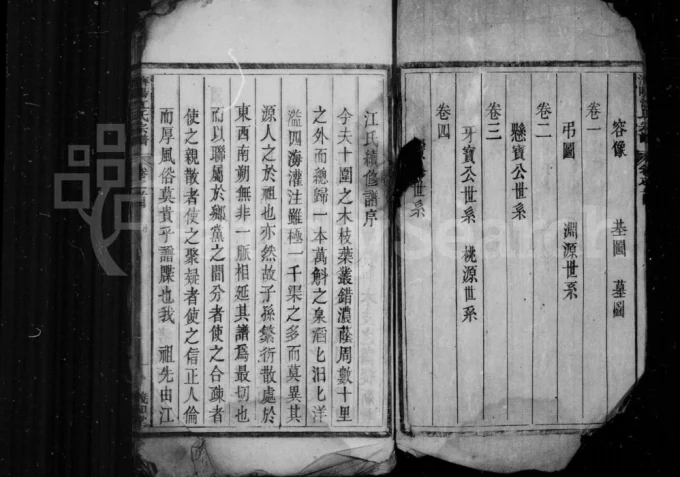 容像　墓圖　墓圖
卷一
弔圖　淵源世系
卷二
懸寶公世系
卷三
牙寶公世系　桃源世系
卷四
世系
江氏續修譜序
今夫十圍之木枝葉叢錯濃蔭周數十里
之外而總歸一本萬斛之泉滔匕汨匕洋
溢四海灌注雖極一千渠之多而莫異其
源人之於祖也亦然故子孫繁衍散處於
東西南朔無非一脈相延其譜爲最切也
而以聯屬於鄉黨之間分者使之合疎者
使之親散者使之聚疑者使之信正人倫
而厚風俗莫貴乎譜牒也我　祖先由江
江氏宗譜